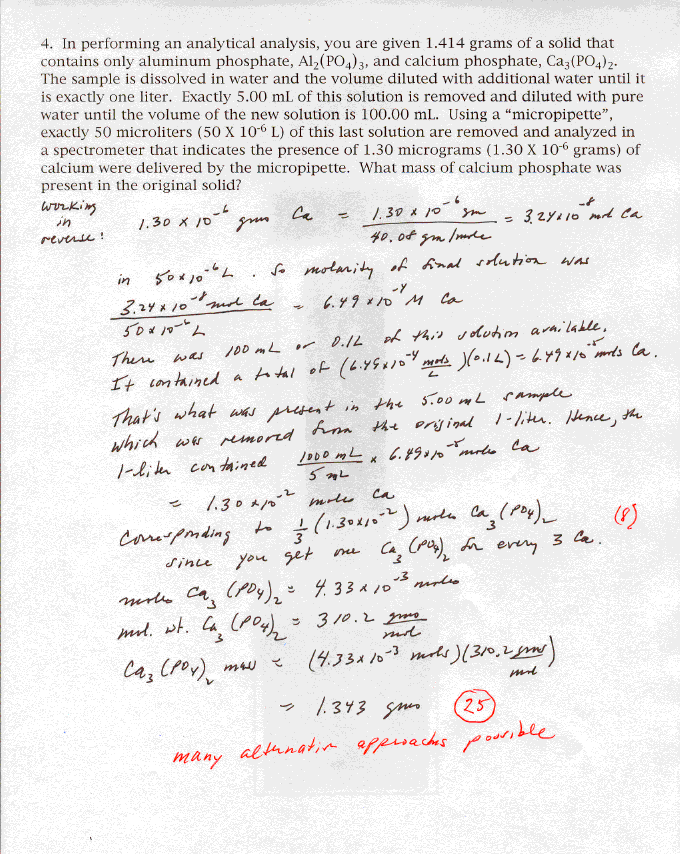 4. In performing an analytical analysis, you are given 1.414 grams of a solid that
contains only aluminum phosphate, Al₂(PO₄)₃, and calcium phosphate, Ca₃(PO₄)₂.
The sample is dissolved in water and the volume diluted with additional water until it
is exactly one liter. Exactly 5.00 mL of this solution is removed and diluted with pure
water until the volume of the new solution is 100.00 mL. Using a “micropipette”,
exactly 50 microliters (50 X 10⁻⁶ L) of this last solution are removed and analyzed in
a spectrometer that indicates the presence of 1.30 micrograms (1.30 X 10⁻⁶ grams) of
calcium were delivered by the micropipette. What mass of calcium phosphate was
present in the original solid?
working
in
reverse!
1.30 x 10⁻⁶ gms Ca = 1.30 x 10⁻⁶ gm / 40.08 gm/mole = 3.24x10⁻⁸ mol Ca
in 50x10⁻⁶ L. So molarity of final solution was
3.24 x 10⁻⁸ mol Ca / 50x10⁻⁶ L = 6.49 x 10⁻⁴ M Ca
There was 100 mL or 0.1L of this solution available.
It contained a total of (6.49x10⁻⁴ mols/L)(0.1L) = 6.49x10⁻⁵ mols Ca.
That's what was present in the 5.00 mL sample
which was removed from the original 1-liter. Hence, the
1-liter contained 1000 mL / 5 mL x 6.49x10⁻⁵ moles Ca
= 1.30 x10⁻² moles Ca
Corresponding to 1/3 (1.30x10⁻²) moles Ca₃(PO₄)₂ (8)
since you get one Ca₃(PO₄)₂ for every 3 Ca.
moles Ca₃(PO₄)₂ = 4.33 x 10⁻³ moles
mol. wt. Ca₃(PO₄)₂ = 310.2 gms/mol
Ca₃(PO₄)₂ mass = (4.33x10⁻³ mols)(310.2 gms/mol)
= 1.343 gms (25)
many alternativ approachs possible